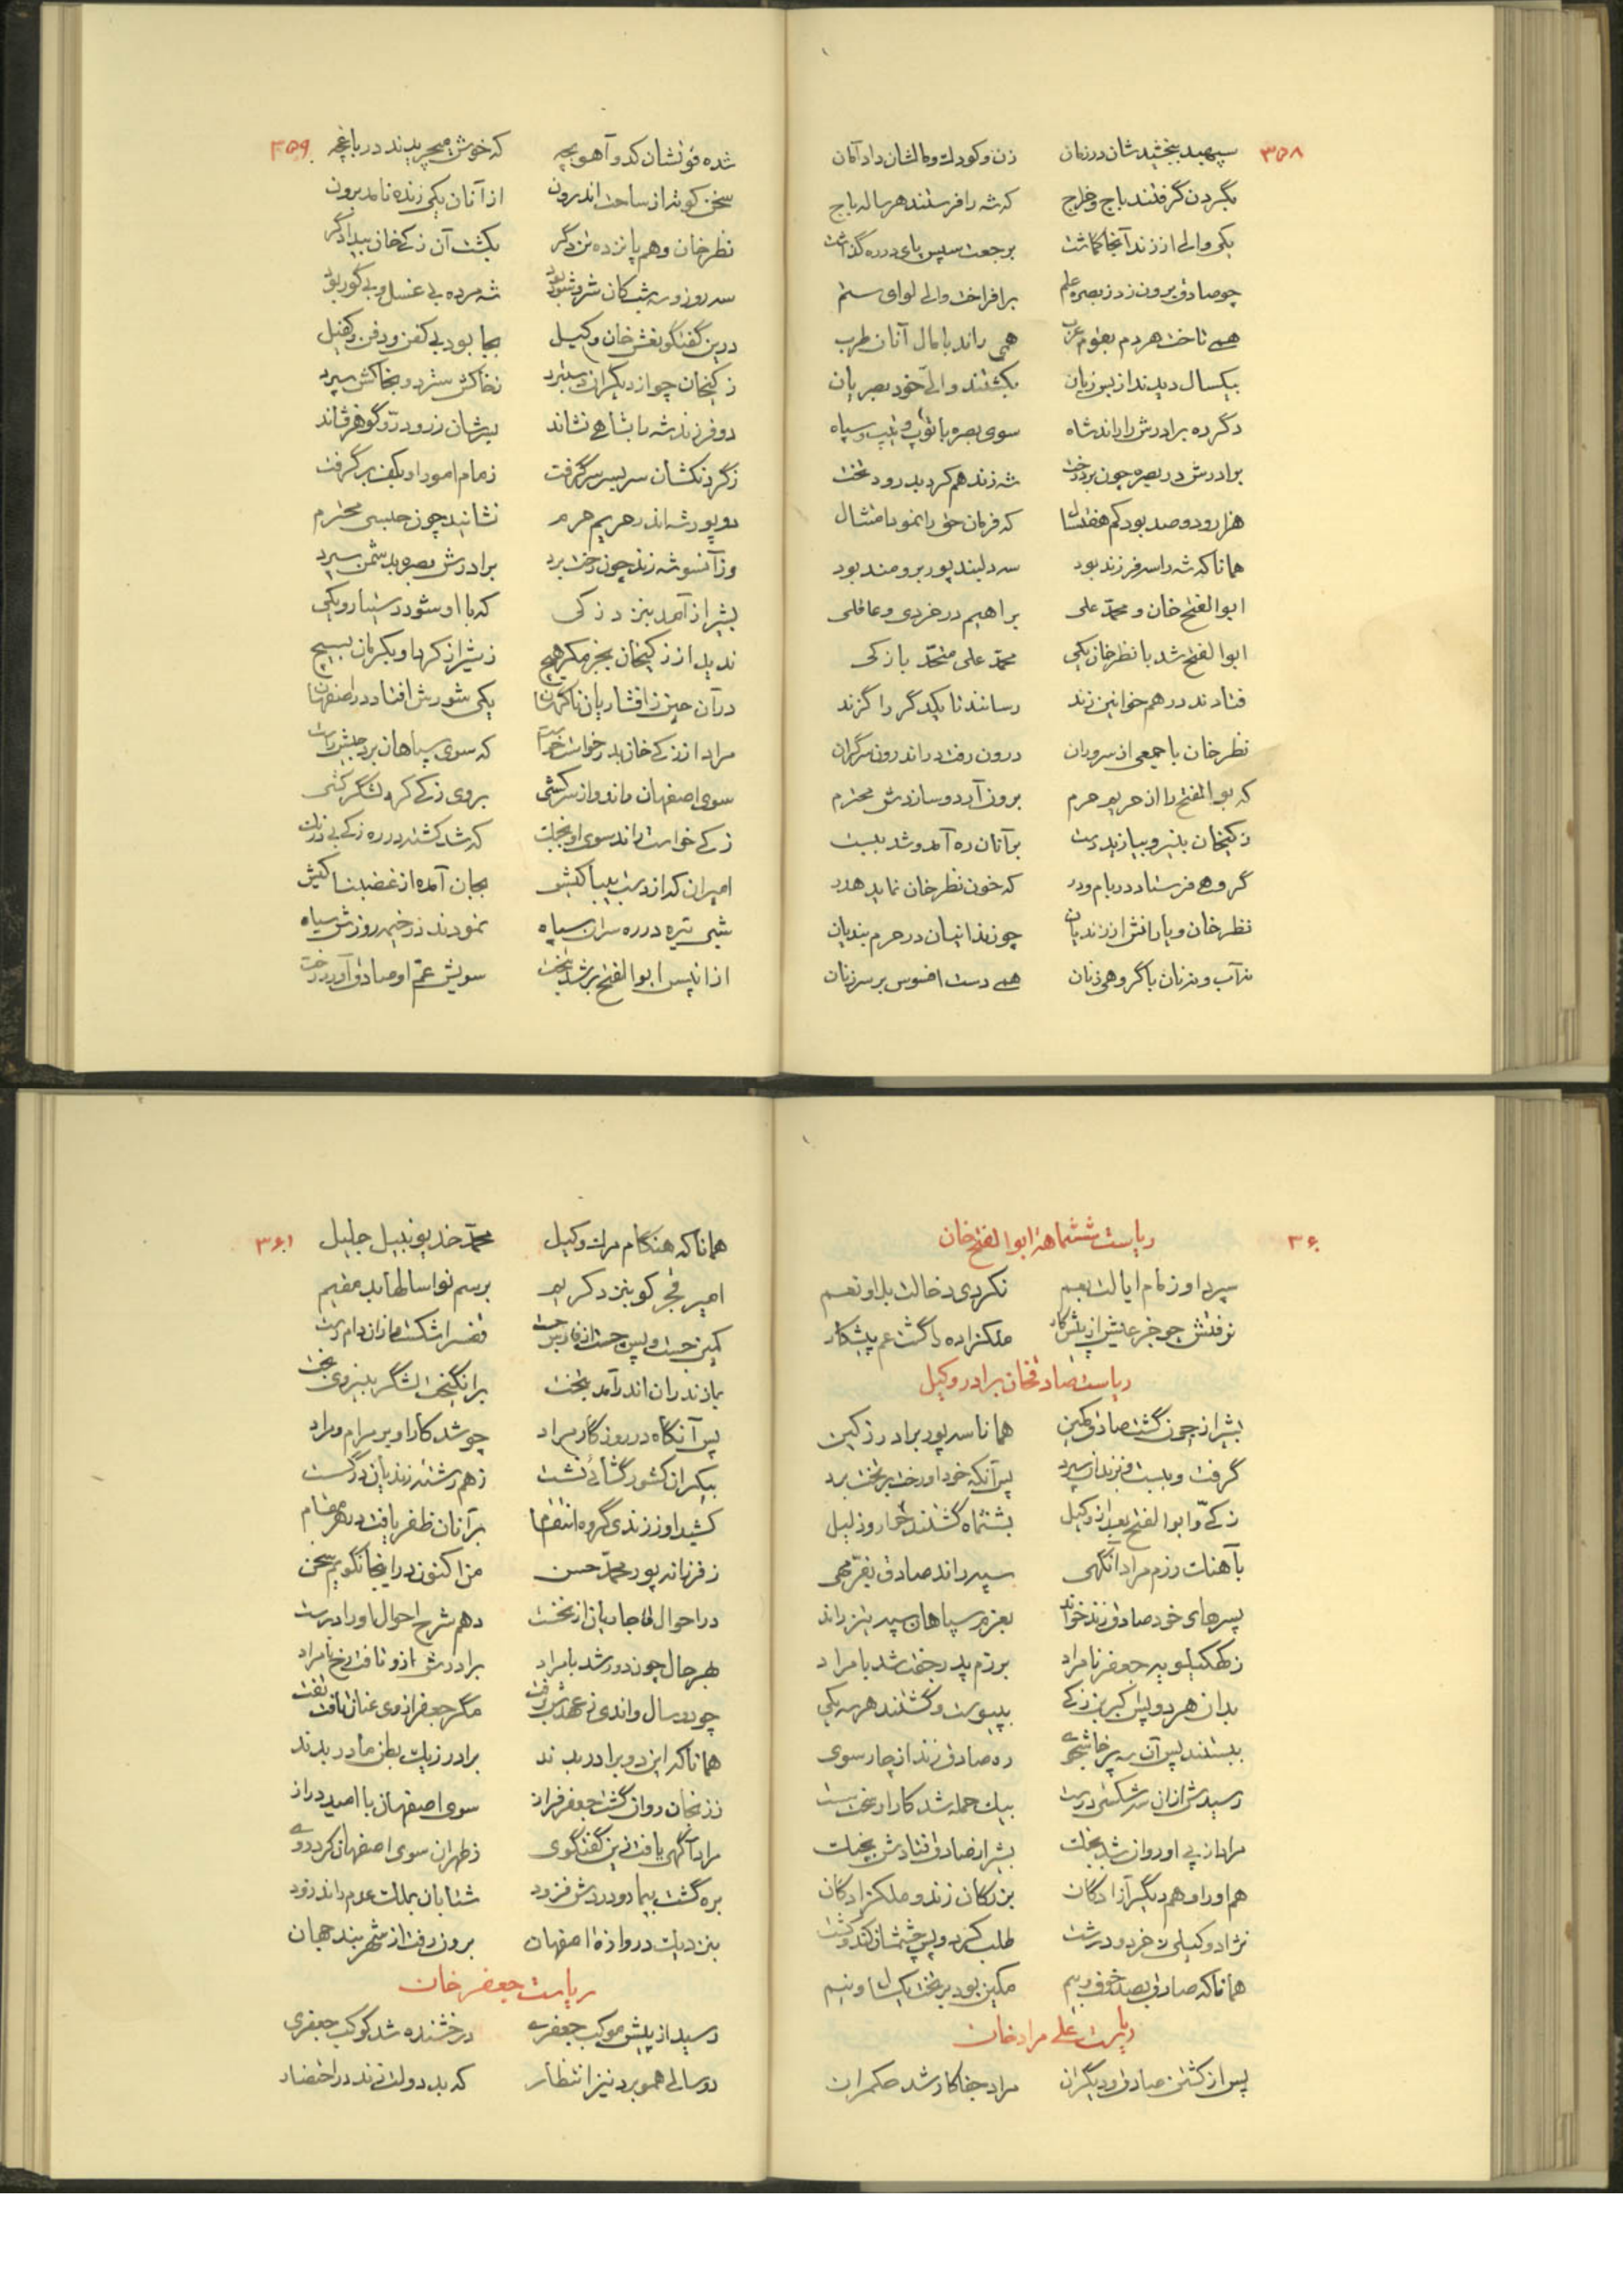 ۳۵۸
سپهبد ببخشید شان در زمان زن و کودک و مالشان داد امان
بگردن گرفتند باج و خراج که شه را فرستند هر ساله باج
یکی والی از زند آنجا گماشت برجعت سپس پای در ره گذاشت
چو صادق برون زد ز بصره علم برافراخت والی لوای ستم
همی تاخت هر دم بقوم عرب همی راند با مال آنان طرب
بیکسال دیدند از بس زیان بکشتند والی خود بصریان
دگر ره برادرش را راند شاه سوی بصره با توپ و تیپ و سپاه
برادرش در بصره چون برد رخت شه زند هم کرد بدرود تخت
هزار و دو صد بود کم هفت سال که فرمان حق را نمود امتثال
همانا که شه را سه فرزند بود سه دلبند پور برومند بود
ابوالفتح خان و محمد علی براهیم در خردی و عاقلی
ابوالفتح شد با نظر خان یکی محمد علی متحد با زکی
فتادند در هم خوانین زند رسانند تا یکدگر را گزند
نظر خان با جمعی از سروران درون رفت در اندرون سرگران
که بوالفتح را از حریم حرم برون آرد و سازدش محترم
زکیخان بنیرو بیازید دست بر آنان ره آمد و شد ببست
گروهی فرستاد در بام و در که خون نظر خان نماید هدر
نظر خان و یارانش از زندیان چو زندانیان در حرم بندیان
نه آب و نه نان با گروهی زنان همی دست افسوس بر سر زنان
۳۵۹
شده قوتشان کدو آهو بچه که خوش میچریدند در باغچه
سخن کوته از ساحت اندرون از آنان یکی زنده نامد برون
نظر خان و هم پانزده تن دگر بکشت آن زکی خان بیدادگر
سه روز و سه شب کان شر و شور بود شه مرده بی غسل و بی گور بود
درین گفتگو نعش خان وکیل بجا بود بی کفن و دفن و کفیل
زکیخان چو از دیگران دستبرد نخاکش سترد و بخاکش سپرد
دو فرزند شه را بشاهی نشاند بسرشان زر و درّ و گوهر فشاند
ز گردنکشان سر بسر سر گرفت زمام امور او بکف بر گرفت
دو پور شه اندر حریم حرم نشانید چون حبسی محترم
وز آنسو شه زند چون رخت برد برادرش بصره بدشمن سپرد
بشیراز آمد بنزد زکی که با او شود دستیار و یکی
ندید از زکیخان بجز مکر هیچ ز شیراز کرد او بکرمان بسیج
در آن حین ز افشاریان ناگهان یکی شورش افتاد در اصفهان
مراد از زکی خان بدرخواست خواست که سوی سپاهان برد جیش راست
سوی اصفهان ماند و از سرکشی بروی زکی کرد لشگرکشی
زکی خواست راند سوی او بجنگ که شد کشته در ره زکی بی درنگ
امیران که از دست بیباکیش بجان آمده از غضبناکیش
شبی تیره در ره سران سپاه نمودند در خیمه روزش سیاه
از آن پس ابوالفتح بر شد بتخت سویش عمّ او صادق آورد رخت
۳۶۰
ریاست ششماهه ابوالفتح خان
سپرد او زمام ایالت بعم نکردی دخالت بلا و نعم
نرفتش جو خر عایش از پیش کار ملکزاده را گشت عم پیشکار
ریاست صادقخان برادر وکیل
بشیراز چون گشت صادق مکین همانا سه پور برادر ز کین
گرفت و ببست و بزندان سپرد پس آنکه خود او رخت بر تخت برد
زکیّ و ابوالفتح بعد از وکیل بششماه گشتند خوار و ذلیل
بآهنگ رزم مراد آنگهی سپه راند صادق بفرّ مهی
پسرهای خود صادق زند خواند بعزم سپاهان سپه نیز راند
ز کهکیلویه جعفر نامراد برزم پدر جفت شد با مراد
بدان هر دو پس اکبر بن زکی بپیوست و گشتند هر سه یکی
ببستند پس آن سه پرخاشجوی ره صادق زند از چار سوی
رسیدش از آن سه شکستی درست بیک حمله شد کار او سخت سست
مراد از پی او روان شد بجنگ بشیراز صادق فتادش بچنگ
هم او را و هم دیگر آزادگان بزرگان زند و ملکزادگان
نژاد وکیلی ز خرد و درشت طلب کرد و پس چشمشان کند و کشت
همانا که صادق بصد خوف و بیم مکین بود بر تخت یکسال و نیم
ریاست علی مراد خان
پس از کشتن صادق و دیگران مراد جفاکار شد حکمران
۳۶۱
همانا که هنگام مرگ وکیل محمّد خدیو نبیل جلیل
امیر قجر کو بنزد کریم برسم نوا سالها بد مقیم
کمین جست و پس جست از فارس جست قفس را شکست و از آن دام رست
بمازندران اندر آمد بتخت برانگیخت لشگر بنیروی بخت
پس آنگاه در روزگار مراد چو شد کار او بر مرام و مراد
بیکران کشور گشائی نشست ز هم رشته زندیان درگسست
کشید او ز زندی گروه انتقام بر آنان ظفر یافت در هر مقام
ز فرزانه پور محمد حسن من اکنون در اینجا نگویم سخن
در احوال قاجاریان از نخست دهم شرح احوال او را درست
بهر حال چون دور شد با مراد برادرش ازو تافت رخ نامراد
چو دو سال و اندی ز عهدش برفت مگر جعفر از وی عنان تافت تفت
همانا که این دو برادر بدند برادر ز یک بطن مادر بدند
ز زنجان روان گشت جعفر فراز سوی اصفهان با امید دراز
مراد آگهی یافت زین گفتگوی ز طهران سوی اصفهان کرد روی
بره گشت بیمار و دردش فزود شتابان بملک عدم راند زود
بنزدیک دروازه اصفهان برون رفت از شهر بند جهان
ریاست جعفر خان
رسید از پیش موکب جعفری درخشنده شد کوکب جعفری
دو سالی همو برد نیز انتظار که بد دولت زند در احتضار